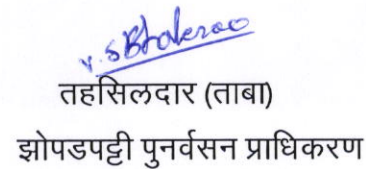 v.sBhalerao
तहसिलदार (ताबा)
झोपडपट्टी पुनर्वसन प्राधिकरण